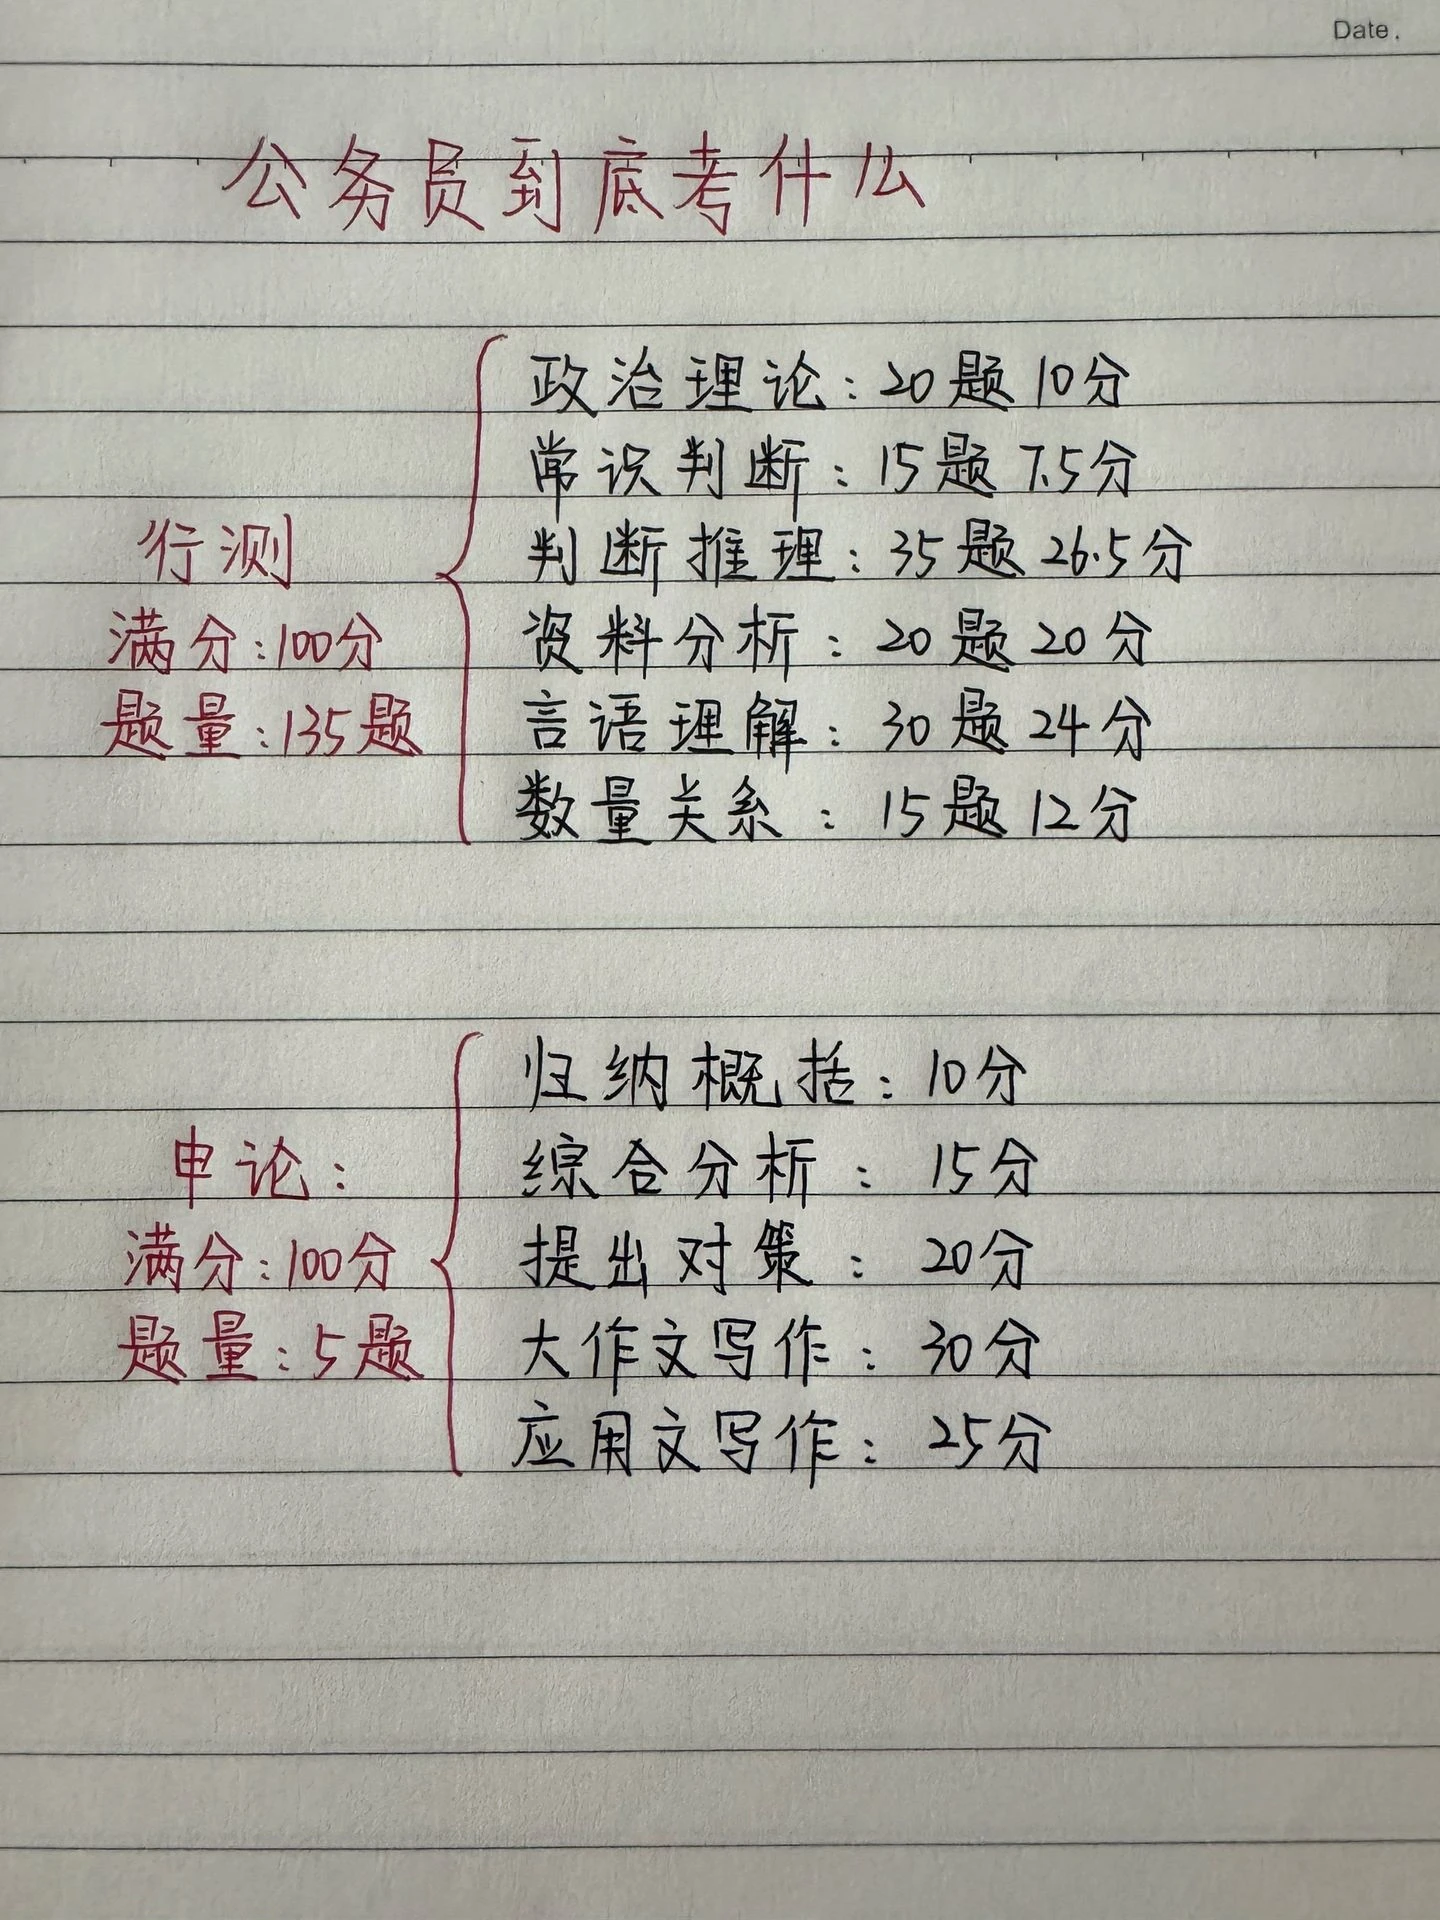 Date.
公务员到底考什么
行测
满分:100分
题量:135题
政治理论:20题10分
常识判断:15题7.5分
判断推理:35题26.5分
资料分析:20题20分
言语理解:30题24分
数量关系:15题12分
申论:
满分:100分
题量:5题
归纳概括:10分
综合分析:15分
提出对策:20分
大作文写作:30分
应用文写作:25分